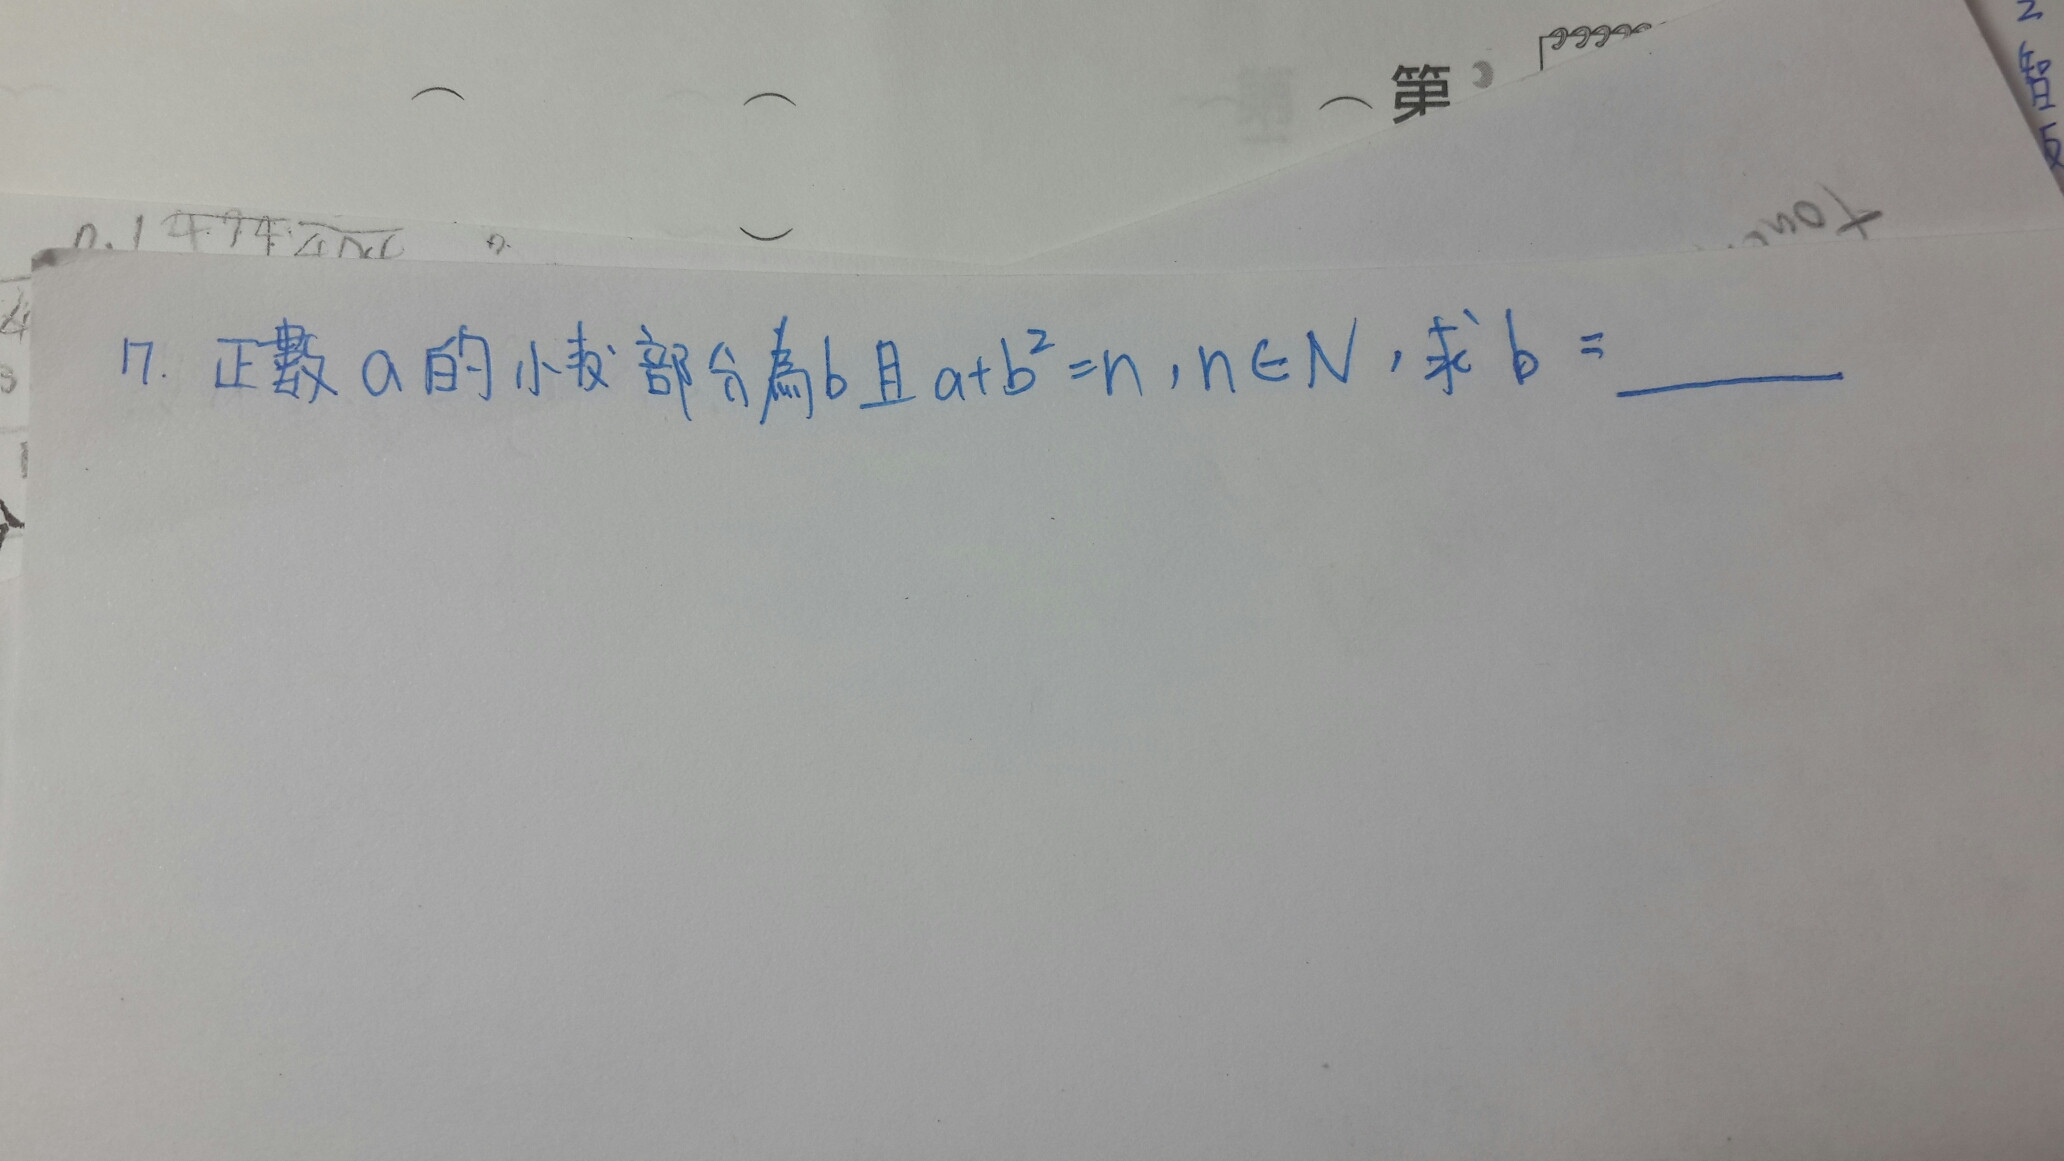 第
17. 正數 a 的小数部分為b且a+b²=n,n∈N,求b=